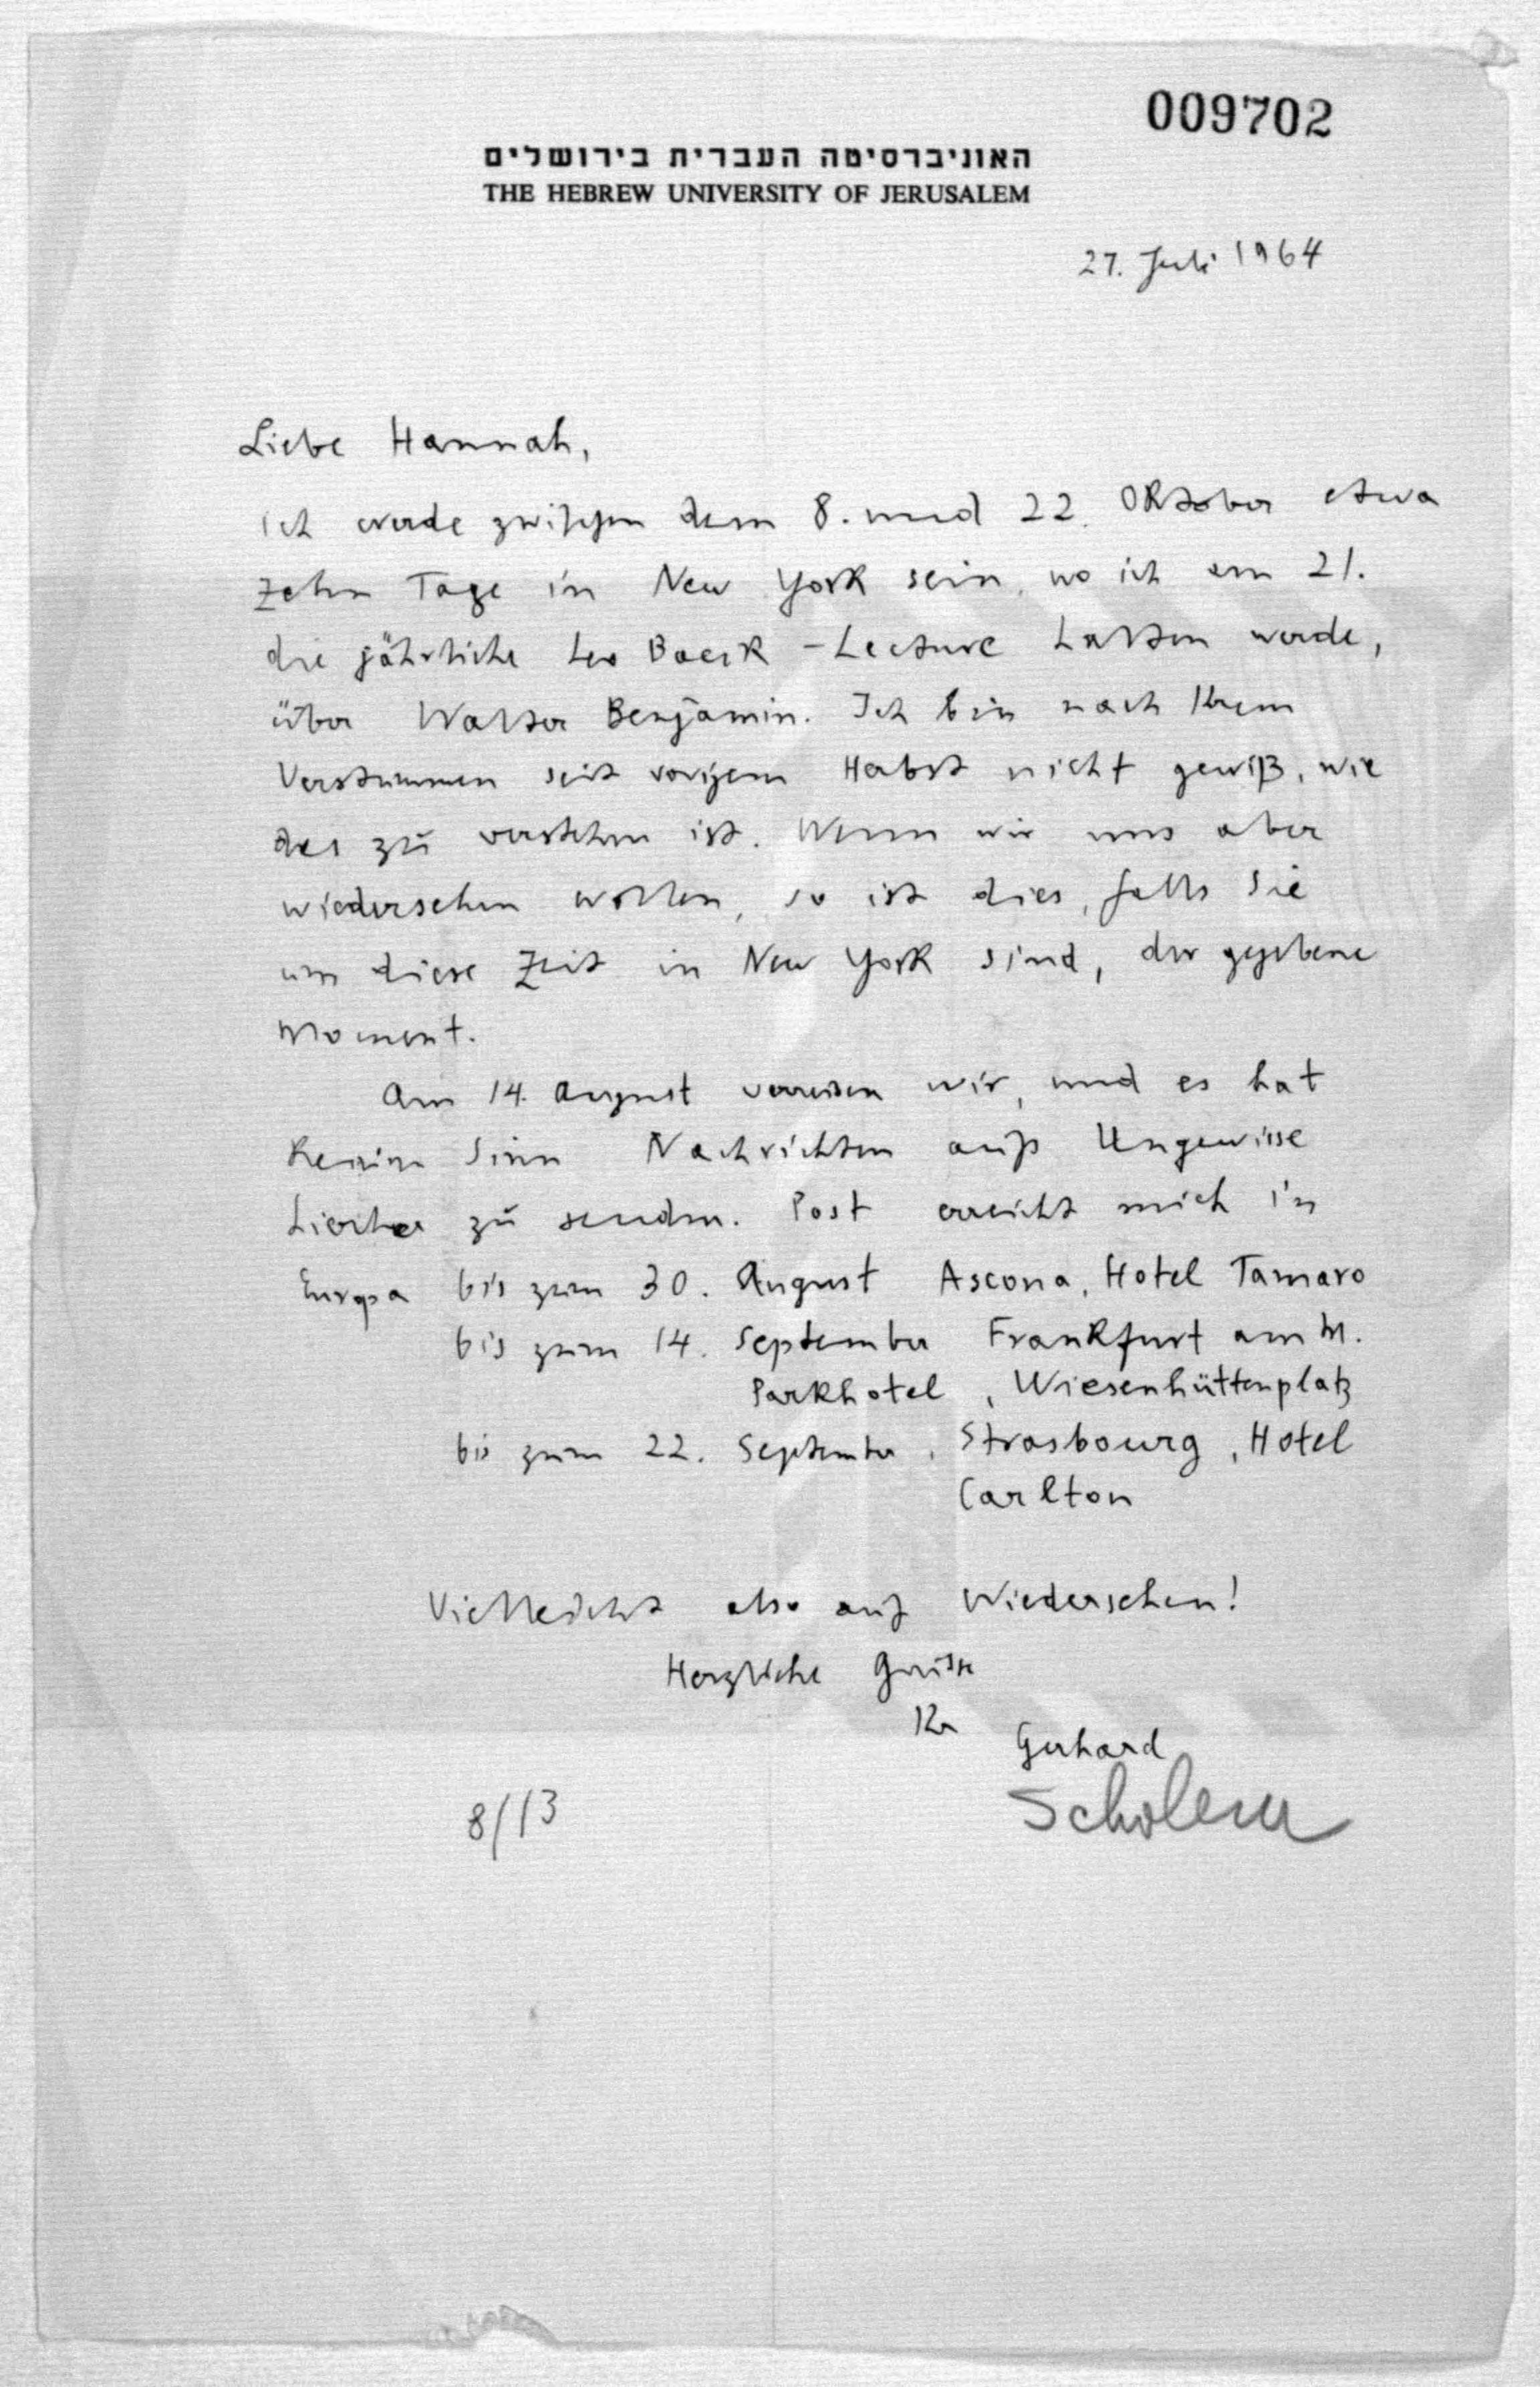 009702
האוניברסיטה העברית בירושלים
THE HEBREW UNIVERSITY OF JERUSALEM
27. Juli 1964
Liebe Hannah,
ich werde zwischen dem 8. und 22. Oktober etwa
zehn Tage in New York sein, wo ich am 21.
die jährliche Leo Baeck-Lecture halten werde,
über Walter Benjamin. Ich bin nach Ihrem
Verstummen seit vorigem Herbst nicht gewiß, wie
das zu verstehen ist. Wenn wir uns aber
wiedersehen wollen, so ist dies, falls Sie
um diese Zeit in New York sind, der gegebene
Moment.
Am 14. August verreisen wir, und es hat
keinen Sinn Nachrichten aufs Ungewisse
hierher zu senden. Post erreicht mich in
Europa bis zum 30. August Ascona, Hotel Tamaro
bis zum 14. September Frankfurt am M.
Parkhotel, Wiesenhüttenplatz
bis zum 22. September, Strasbourg, Hotel
Carlton
Vielleicht also auf Wiedersehen!
Herzliche Grüsse
Ihr
Gerhard
Scholem
8/13